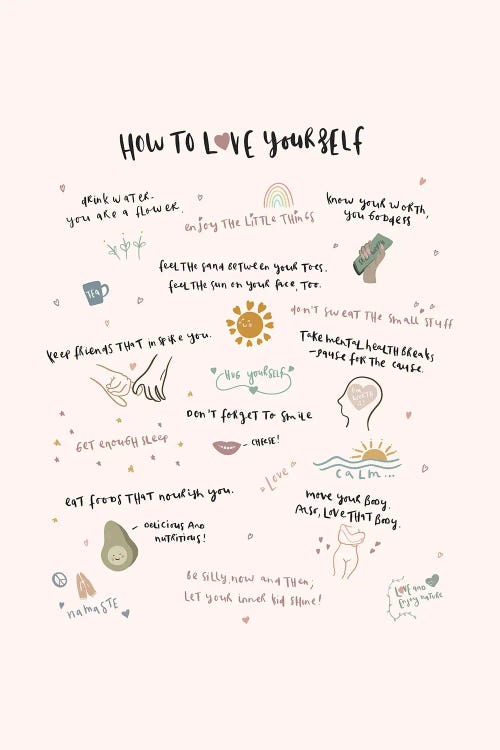 HOW TO LOVE YOURSELF
drink water.
you are a flower.
enjoy THE LITTLE THINGS
know your worth,
you Goddess
feel THE sand between your toes.
feel THE sun on your face, too.
TEA
don't sweat the small stuff
keep friends THAT inspire you.
Take mental health breaks
-pause for the cause.
HUG YOURSELF
I'M
WORTH
IT
DON'T FORGET TO SMILE
CHEESE!
GET ENOUGH SLEEP
CALM...
Love
eat foods THAT nourish you.
move your body.
Also, Love THAT Body.
Delicious and
nutritious!
Be silly now and then;
LET your inner kid shine!
LOVE and
Enjoy nature
namaste